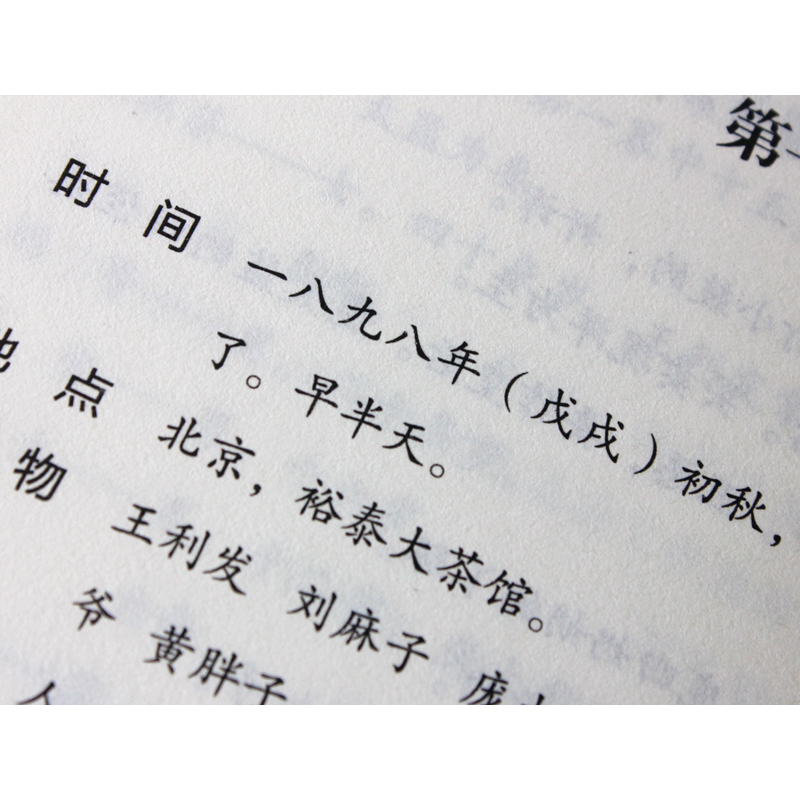 第一
时间 一八九八年（戊戌）初秋，
了。早半天。
地点 北京，裕泰大茶馆。
物 王利发 刘麻子 庞
爷 黄胖子
人